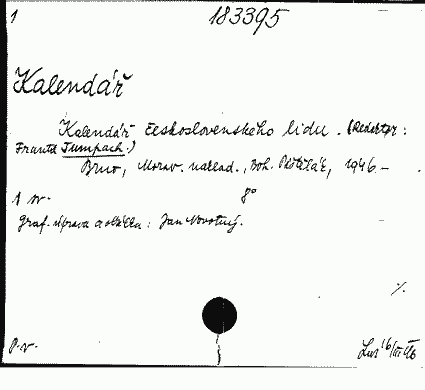 1 183395
Kalendář
Kalendář československého lidu. (Redaktor:
Franta Tumpach.)
Brno, Morav. naklad., Boh. 1946 –
1 sv. 8°
Graf. úprava a obálka: Jan Novotný.
%
P.v. 16/III 46